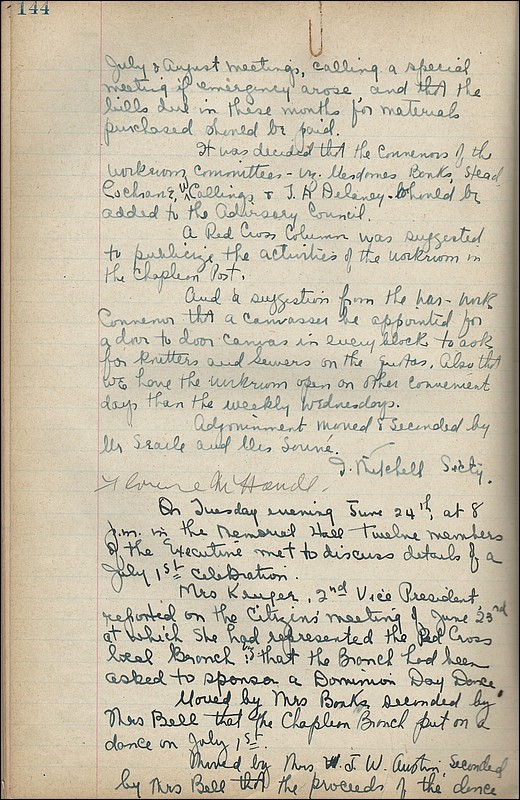 144
July & August meetings, calling a special
meeting if emergency arose and that the
bills due in these months for materials
purchased should be paid.
It was decided that the convenors of the
workroom committees - viz. Mesdames Banks, Stead,
Cochrane, Collings & J. A. Delaney should be
added to the Advisory Council.
A Red Cross Column was suggested
to publicize the activities of the workroom in
the Chapleau Post.
And a suggestion from the war-work
Convenor that a canvasser be appointed for
a door to door canvas in every block to ask
for knitters and sewers on the quotas. Also that
we have the workroom open on other convenient
days than the weekly Wednesdays.
Adjournment moved & seconded by
Mr Searle and Mrs
J. Mitchell Sect'y.
Florence M
On Tuesday evening June 24th, at 8
p.m. in the Memorial Hall Twelve members
of the Executive met to discuss details of a
July 1st celebration.
Mrs Kruger, 2nd Vice President,
reported on the Citizens' meeting of June 23rd
at which she had represented the Red Cross
local Branch & that the Branch had been
asked to sponsor a Dominion Day Dance.
Moved by Mrs Banks seconded by
Mrs Bell that the Chapleau Branch put on a
dance on July 1st.
Moved by Mrs. W. J. W. Austin, seconded
by Mrs Bell that the proceeds of the dance